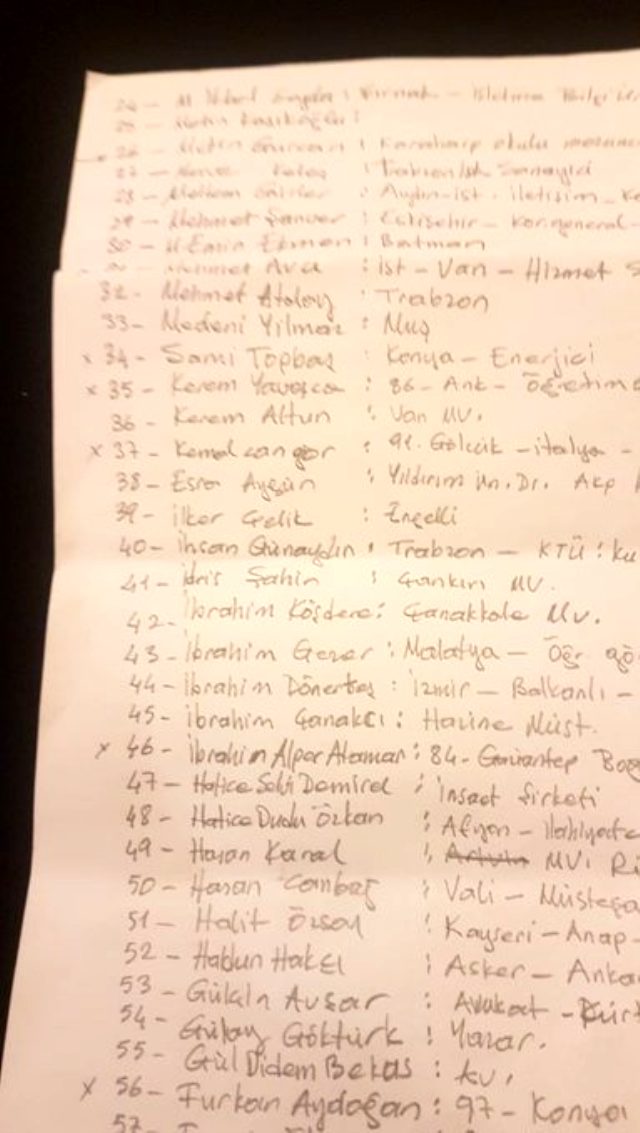 24 - M
25 -
26 - Metin Gürcan : Karaharp okulu
27 - : Trabzon/ist Sanayici
28 - Meltem : Aydın-ist. iletişim -
29 - Mehmet Şanver : Eskişehir - Korgeneral -
30 - M Emin Ekmen : Batman
Mehmet Avcı : ist - Van - Hizmet S
32 - Mehmet Atalay : Trabzon
33 - Medeni Yılmaz : Muş
x 34 - Sami Topbaş : Konya - Enerjici
x 35 - Kerem Yavaşca : 86 - Ank - Öğretim
36 - Kerem Altun : Van MV.
x 37 - Kemal can gör : 91. Gölcük - italya -
38 - Esra Aygün : Yıldırım Ün. Dr. Akp
39 - ilker Çelik : Engelli
40 - ihsan Günaydın : Trabzon - KTÜ : ku
41 - idris Şahin : Çankırı MV.
42 - ibrahim Köşdere : Çanakkale Mv.
43 - ibrahim Gezer : Malatya - Öğr. gö
44 - ibrahim Dönertaş : izmir - Balkanlı -
45 - ibrahim Çanakcı : Hazine Müst.
x 46 - ibrahim Alper : 84 - Gaziantep
47 - Hatice Demirel : inşaat Şirketi
48 - Hatice Dudu Özkan : Afyon - ilahiyat
49 - Hasan Karal : Artvin MV. Ri
50 - Hasan Canbaz : Vali - Müsteşa
51 - Halit Özsoy : Kayseri - Anap -
52 - Haldun : Asker - Anka
53 - Gülçin Avşar : Avukat - Kürt
54 - Gülay Göktürk : Yazar.
55 - Gül Didem Bekaş : Av.
x 56 - Furkan Aydoğan : 97 - Konya
57 -